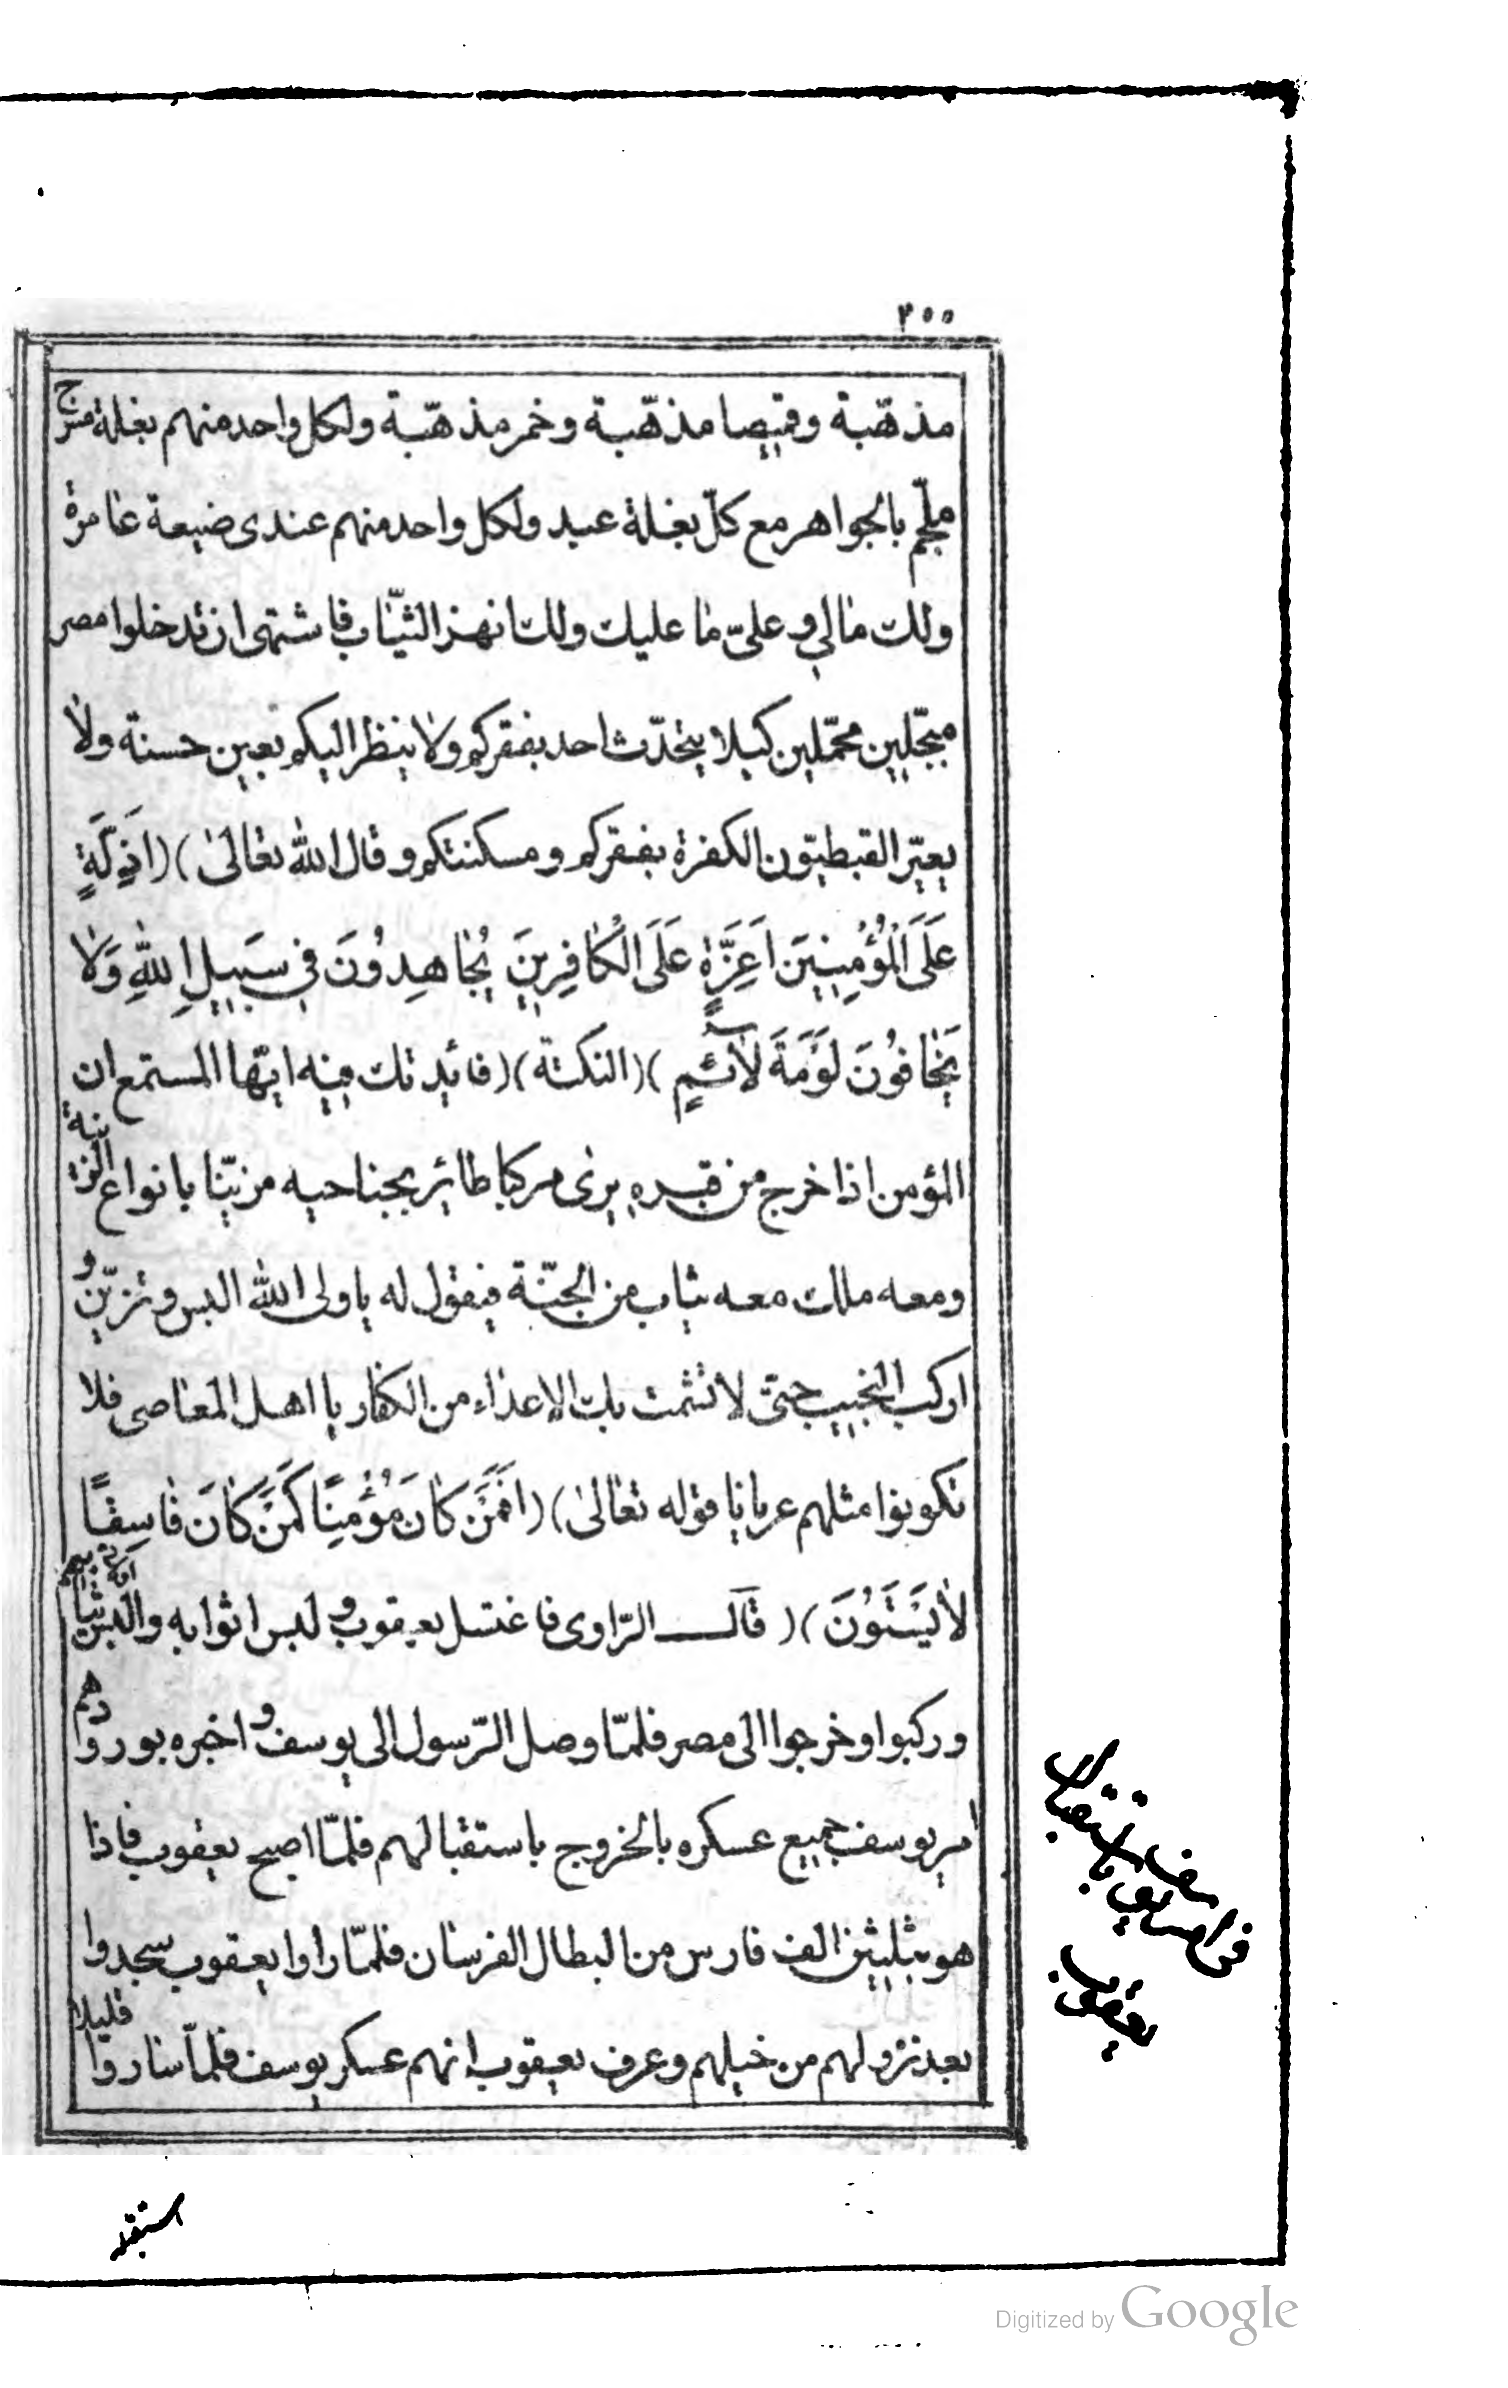 ٢٥٥
مذهّبة وقميصا مذهّبة وخمر مذهّبة ولكل واحد منهم بغلة مسرج
ملجّم بالجواهر مع كلّ بغلة عبد ولكل واحد منهم عندى ضيعة عامرة
ولك مالي وعلىّ ما عليك ولك انهز الثيّاب فاشتهى ان تدخلوا مصر
مبجّلين محمّلين كيلا يتحدّث احد بفقركم ولا ينظر اليكم بعين حسنة ولا
يعيّر القبطيّون الكفرة بفقركم ومسكنتكم وقال الله تعالىٰ )( اَذِلَّةٍ
عَلَى الْمُؤْمِنِينَ اَعِزَّةٍ عَلَى الْكَافِرِينَ يُجَاهِدُونَ فِي سَبِيلِ اللهِ وَلَا
يَخَافُونَ لَوْمَةَ لَآئِمٍ )( النكتة )( فائدتك فيه ايّها المستمع ان
المؤمن اذا خرج من قبره يرى مركبا طائر بجناحيه مزيّنا بانواع الزينة
ومعه ملك معه ثياب من الجنّة فيقول له يا ولى الله البس وتزيّن و
اركب النجيب حتى لا تشمت بك الاعداء من الكفار يا اهل المعاصى فلا
تكونوا مثلهم عريانا قوله تعالىٰ )( اَفَمَنْ كَانَ مُؤْمِنًا كَمَنْ كَانَ فَاسِقًا
لَا يَسْتَوُنَ )( قال الرّاوى فاغتسل يعقوب و لبس اثوابه والبس ثيابهم
وركبوا وخرجوا الى مصر فلمّا وصل الرّسول الى يوسف و اخبره بورودهم
امر يوسف جميع عسكره بالخروج باستقبالهم فلمّا اصبح يعقوب فاذا
هو بثلثين الف فارس من البطال الفرسان فلمّا راوا يعقوب سجدوا
بعد نزولهم من خيلهم وعرف يعقوب انهم عسكر يوسف فلمّا ساروا قليلا
يوسف باستقبال
يعقوب
استقبله
Digitized by Google